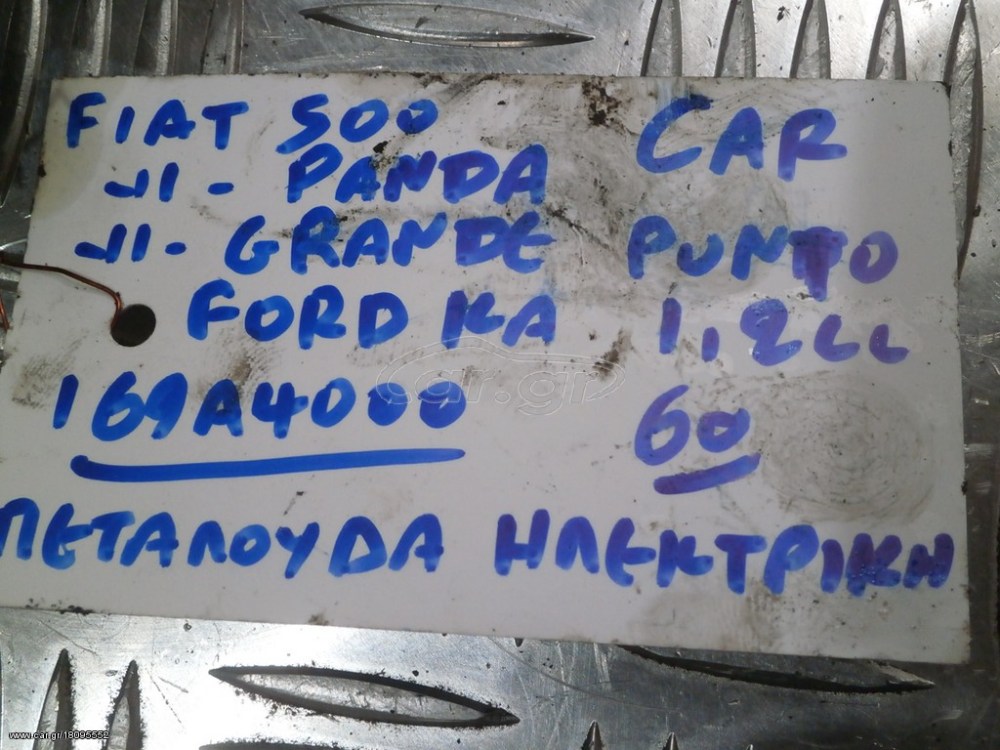 FIAT 500 CAR
-11- PANDA
-11- GRANDE PUNTO
FORD KA 1,2cc
169A4000 60
ΠΕΤΑΛΟΥΔΑ ΗΛΕΚΤΡΙΚΗ
car.gr
www.car.gr/18095552